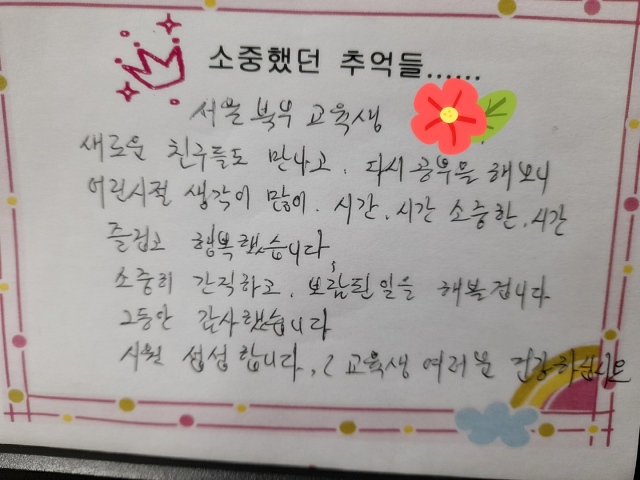 소중했던 추억들......
서울 북부 교육생
새로운 친구들도 만나고, 다시 공부를 해보니
어린시절 생각이 많이. 시간, 시간 소중한, 시간
즐겁고 행복했습니다,
소중히 간직하고, 보람된 일을 해볼겁니다
그동안 감사했습니다
시원 섭섭합니다, 교육생 여러분 건강하십시오